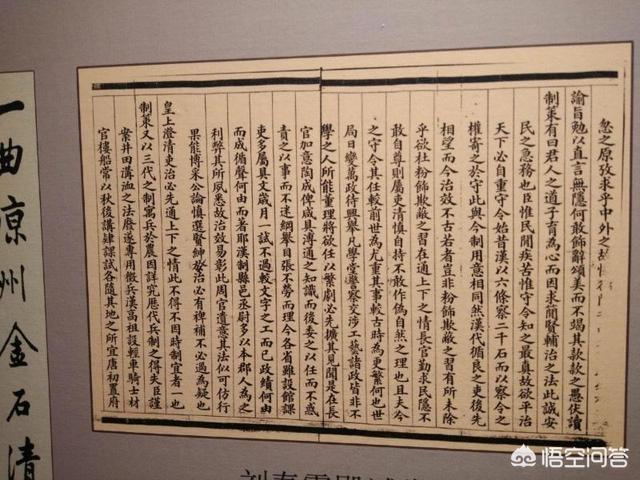 忽之原攷求乎中外之故
諭旨勉以直言無隱何敢飾辭頌美而不竭其款款之愚伏讀
制策有曰君人之道子育為心而因求簡賢輔治之法此誠安
民之急務也臣惟民閒疾苦惟守令知之最真故欲平治
天下必自重守令始昔漢以六條察二千石而以察令之
權寄之於守此與今制用意相同然漢代循良之吏後先
相望而今治效不古若者豈非粉飾欺蔽之習有所未除
乎欲杜粉飾欺蔽之習在通上下之情長官勤求民隱不
敢自尊則屬吏清慎自持不敢作偽自然之理也且夫今
之守令其任較前世為尤重其事較古時為更繁何也世
局日變萬政待興舉凡學堂警察交涉工藝諸政皆非不
學之人所能董理將欲任以繁劇必先擴其見聞是在長
官加意陶成俾咸具溥通之知識而後委之以任而不惑
責之以事而不迷綱舉目張不勞而理今各省雖設館課
吏多屬具文歲月一試不過較文字之工而已政績何由
而成循聲何由而著耶漢制縣邑丞尉多以本郡人為之
利弊其所夙悉故治效易彰此周官遺意其法似可仿行
果能博采公論慎選賢紳於治必有裨補不必過為疑也
皇上澄清吏治必先通上下之情此不得不因時制宜者一也
制策又以三代之制寓兵於農因詳究歷代兵制之得失臣謹
案井田溝洫之法廢遂專用徵兵漢高祖設輕車騎士材
官樓船常以秋後講肄課試各隨其地之所宜唐初置府
一曲涼州金石清
劉春霖殿試
悟空问答